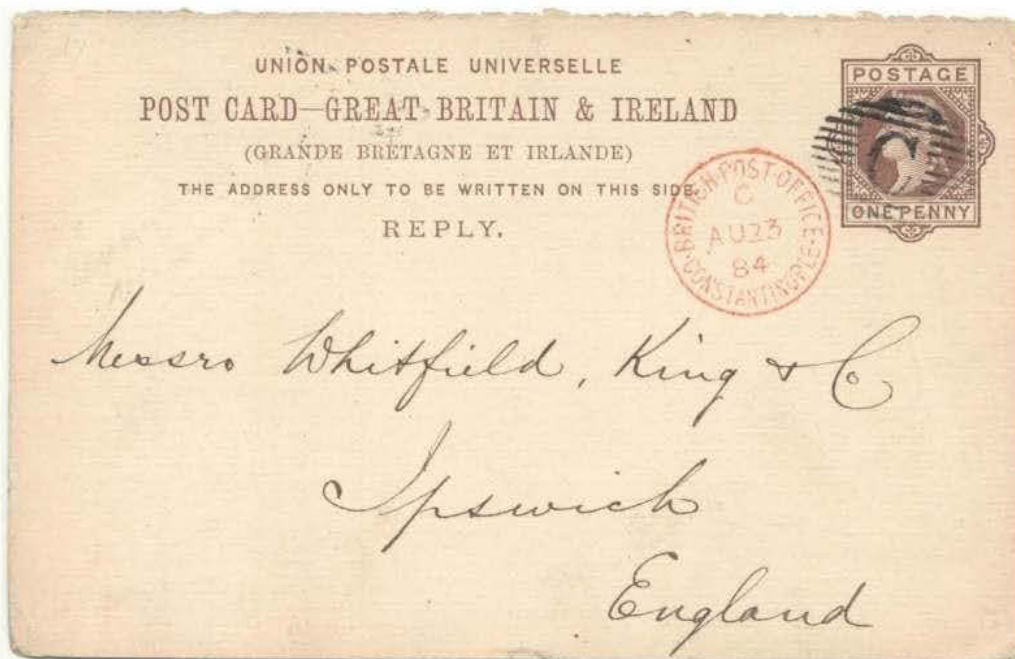 UNION POSTALE UNIVERSELLE
POST CARD—GREAT BRITAIN & IRELAND
(GRANDE BRETAGNE ET IRLANDE)
THE ADDRESS ONLY TO BE WRITTEN ON THIS SIDE.
REPLY.
POSTAGE
ONE PENNY
C
BRITISH·POST·OFFICE
C
AU23
84
·CONSTANTINOPLE·
Messrs Whitfield, King & Co
Ipswich
England